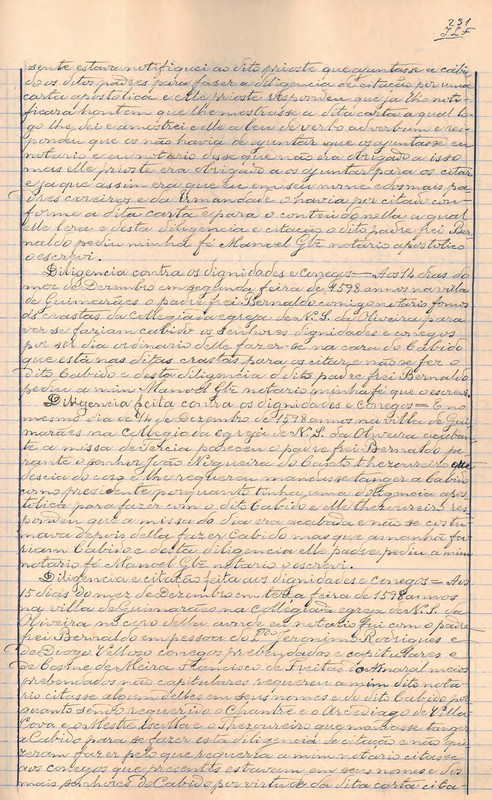 231
sente estava notifiquei ao dito prioste que ajuntasse a cabi-
do os ditos padres para fazer a diligencia de citação por uma
carta apostolica e elle prioste respondeu que já lhe noti-
ficara hontem que lhe mostrasse a dita carta a qual lo-
go lhe dei e amostrei e elle a leu de verbo ad verbum e res-
pondeu que os não havia de ajuntar que os ajuntasse eu
notario e eu notario disse que não era obrigado a isso
mas elle prioste era obrigado a os ajuntar para os citar
e já que assim era que eu em seu nome e dos mais pa-
dres coreiros e da Irmandade o havia por citado con-
forme a dita carta e para o conteudo nella a qual
elle lera e desta diligencia e citação o dito padre frei Ber-
naldo pediu minha fé Manoel Glz notario apostolico
o escrevi.
Diligencia contra os dignidades e conegos = Aos 14 dias do
mez de Dezembro em segunda feira de 1598 annos na villa
de Guimarães o padre frei Bernaldo comigo notario fomos
ás crastas da Collegiada egreja de N. S. da Oliveira para
ver se faziam cabido os senhores dignidades e conegos
por ser dia ordinario delle fazer-se na casa do Cabido
que está nas ditas crastas para os citar e não se fez o
dito Cabido e desta diligencia o dito padre frei Bernaldo
pediu a mim Manoel Glz notario minha fé que o escrevi.
Diligencia feita contra os dignidades e conegos = E no
mesmo dia de 14 de Dezembro de 1598 annos na villa de Gui-
marães na Collegiada egreja de N. S. da Oliveira acaban-
te a missa de Tercia pareceu o padre frei Bernaldo pe-
rante o senhor João Nogueira do Canto thezoureiro que
descia do coro e lhe requereu mandasse tanger a Cabido
como presidente porquanto tinha uma diligencia apos-
tolica para fazer com o dito Cabido e elle thezoureiro res-
pondeu que a missa do dia era acabada e não se costu-
mava depois della fazer Cabido mas que amanhã fa-
riam Cabido e desta diligencia elle padre pediu a mim
notario fé Manoel Glz notario o escrevi.
Diligencia e citação feita aos dignidades e conegos = Aos
15 dias do mez de Dezembro em terça feira de 1598 annos
na villa de Guimarães na Collegiada egreja de N. S. da
Oliveira no coro della aonde eu notario fui com o padre
frei Bernaldo em pessoa de Jeronimo Rodrigues e
de Diogo Velloso conegos prebendados e capitulares e
de Cosme de Meira Francisco de Freitas do Amaral meios
prebendados não capitulares requereu a mim dito nota-
rio citasse algum delles em seus nomes e do dito Cabido por-
quanto sendo requerido o Chantre e o Arcediago de Villa
Cova e o Mestre Escolla e o Thezoureiro que mandasse tanger
a Cabido para se fazer esta diligencia de citação e não qui-
zeram fazer pelo que requeria a mim notario citasse
aos conegos que presentes estavam em seus nomes e dos
mais senhores do Cabido por virtude da dita carta cita-